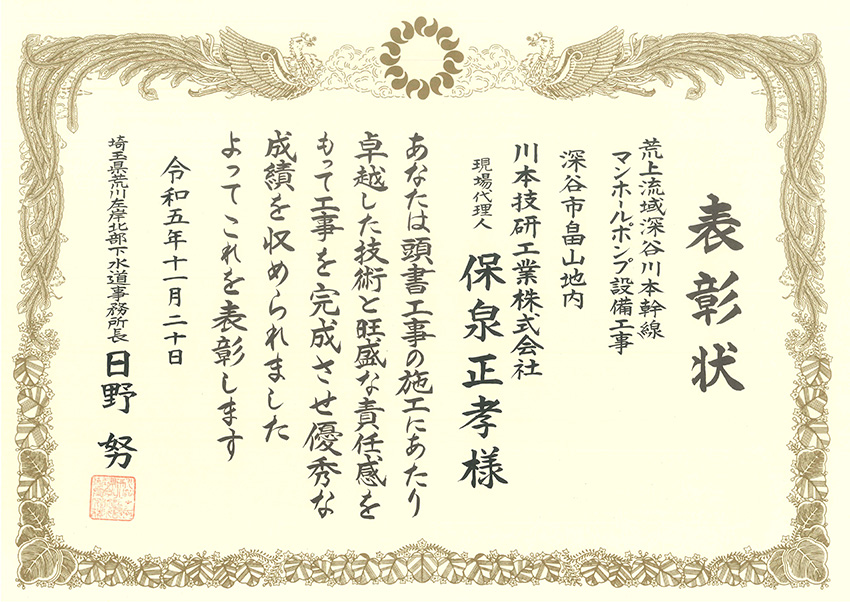 表彰状
荒上流域深谷川本幹線
マンホールポンプ設備工事
深谷市畠山地内
川本技研工業株式会社
現場代理人
保泉正孝様
あなたは頭書工事の施工にあたり
卓越した技術と旺盛な責任感を
もって工事を完成させ優秀な
成績を収められました
よってこれを表彰します
令和五年十一月二十日
埼玉県荒川左岸北部下水道事務所長
日野 努